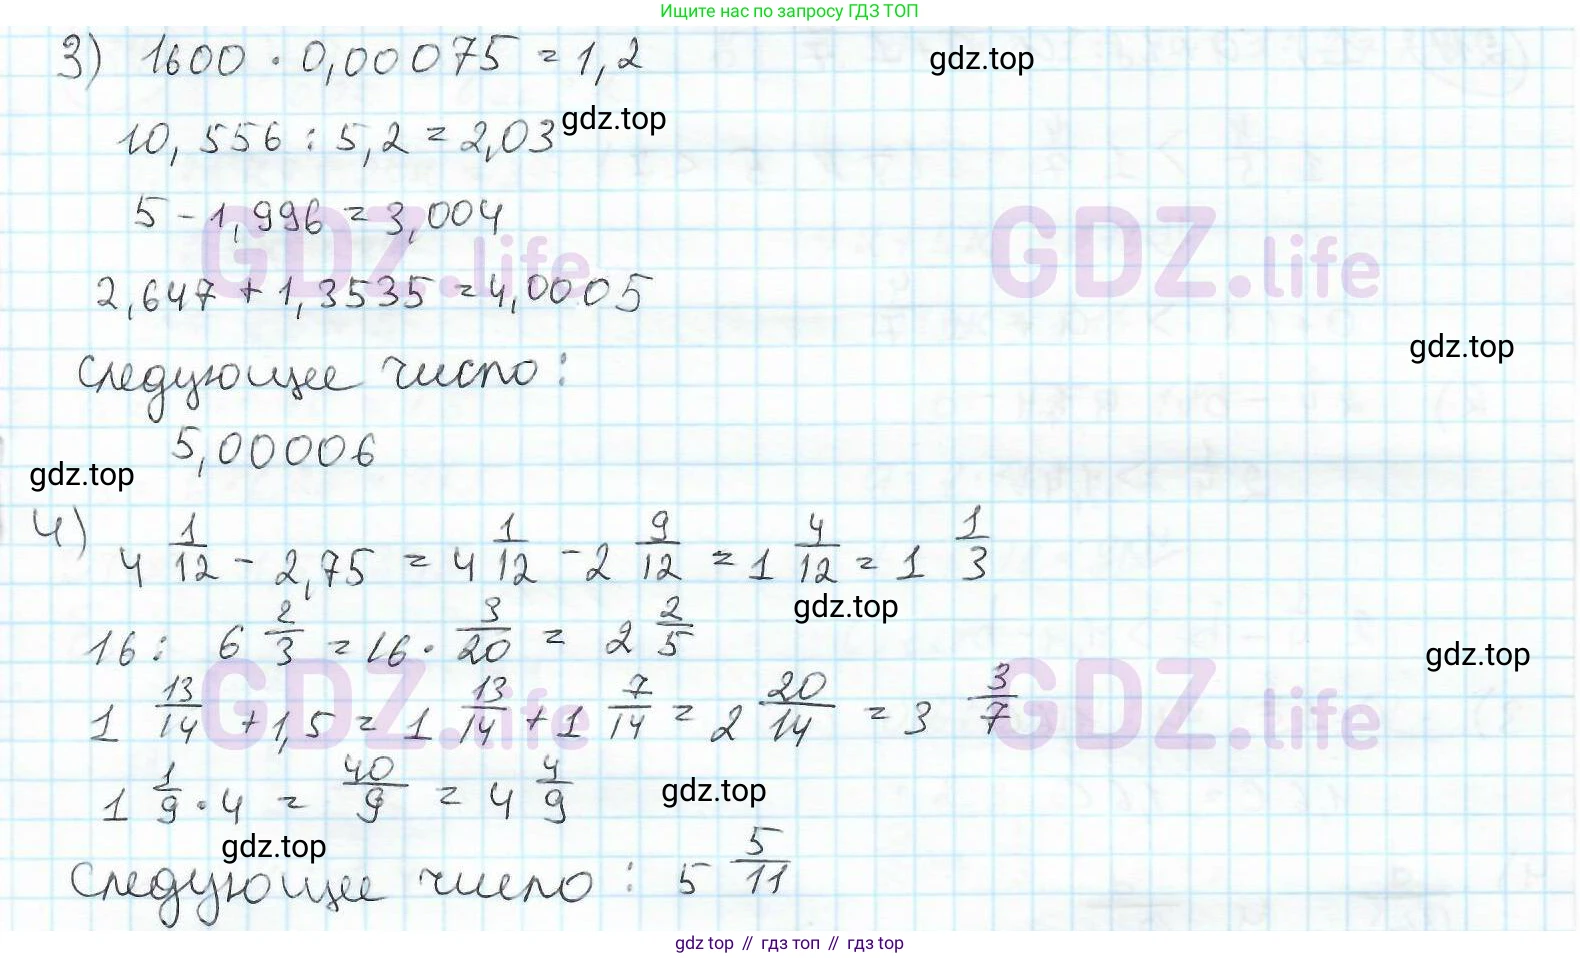 Ищите нас по запросу ГДЗ ТОП
3) 1600 · 0,00075 = 1,2
gdz.top
10,556 : 5,2 = 2,03
gdz.top
5 - 1,996 = 3,004
GDZ.life
GDZ.life
2,647 + 1,3535 = 4,0005
gdz.top
Следующее число:
5,00006
gdz.top
4) 4 1/12 - 2,75 = 4 1/12 - 2 9/12 = 1 4/12 = 1 1/3
gdz.top
16 : 6 2/3 = 16 · 3/20 = 2 2/5
gdz.top
GDZ.life
GDZ.life
1 13/14 + 1,5 = 1 13/14 + 1 7/14 = 2 20/14 = 3 3/7
1 1/9 · 4 = 40/9 = 4 4/9
gdz.top
gdz.top
Следующее число : 5 5/11
gdz top // гдз топ // гдз top